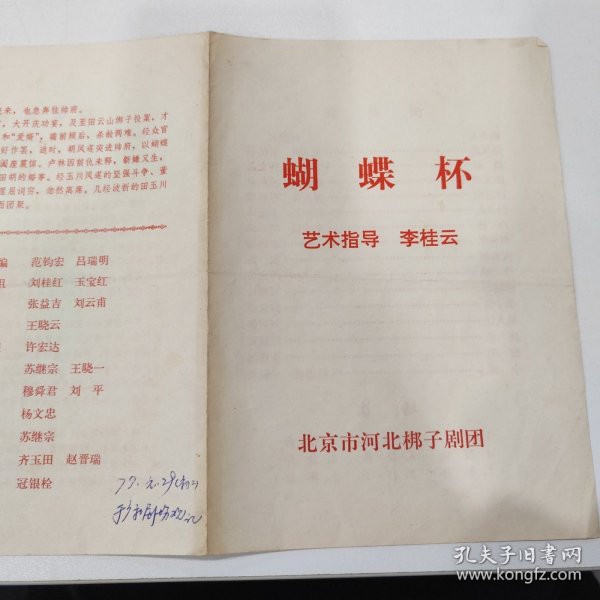 来，也急奔往帅府。
，大开庆功宴，及至田云山梆子投案，才
和“爱婿”，瞻前顾后，杀赦两难。经众官
好作罢。这时，胡凤莲突进帅府，以蝴蝶
阖座震惊。卢林因前仇未释，新嫌又生，
田明的婚事。经玉川凤莲的坚强斗争、董
屈词穷，怆然离席。几经波折的田玉川
而团聚。
编 范钧宏 吕瑞明
组 刘桂红 玉宝红
张益吉 刘云甫
王晓云
许宏达
苏继宗 王晓一
穆舜君 刘 平
杨文忠
苏继宗
齐玉田 赵晋瑞
冠银栓
蝴蝶杯
艺术指导 李桂云
北京市河北梆子剧团
孔夫子旧书网
www.kongfz.com